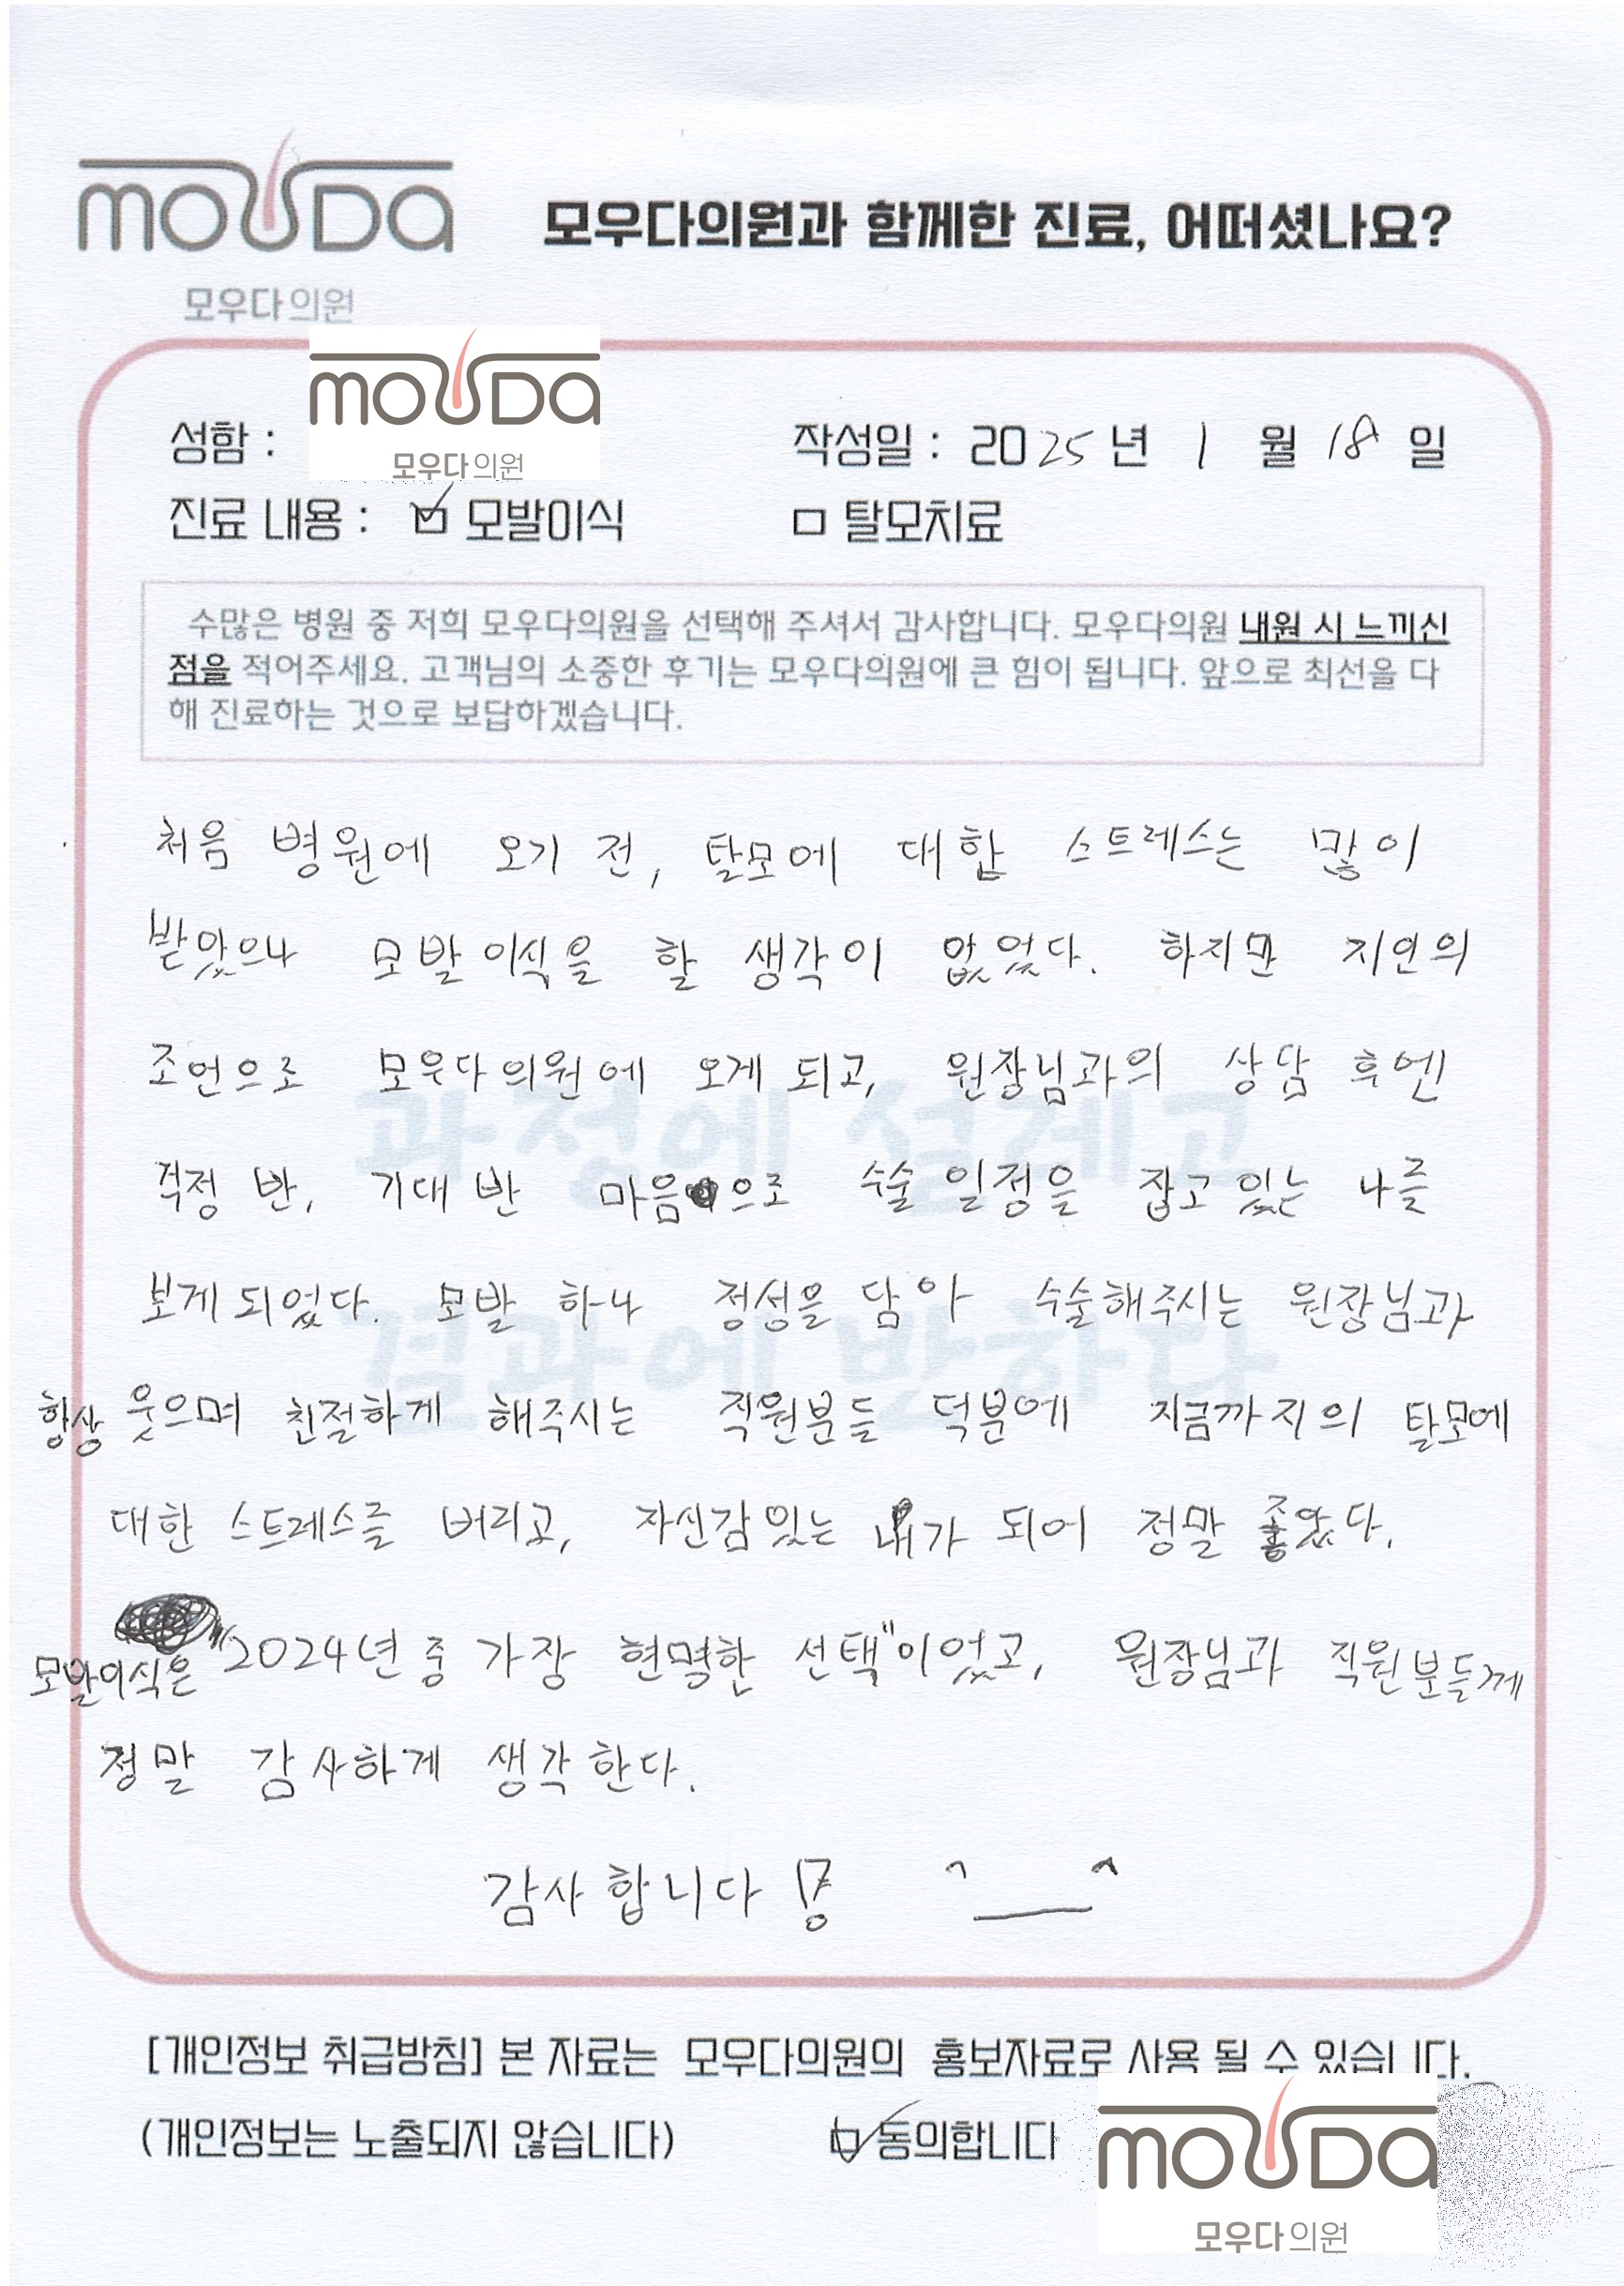 mouda
모우다의원과 함께한 진료, 어떠셨나요?
모우다의원
mouda
모우다의원
성함 :
작성일 : 2025년 1월 18일
진료 내용 : ☑ 모발이식 □ 탈모치료
수많은 병원 중 저희 모우다의원을 선택해 주셔서 감사합니다. 모우다의원 내원 시 느끼신
점을 적어주세요. 고객님의 소중한 후기는 모우다의원에 큰 힘이 됩니다. 앞으로 최선을 다
해 진료하는 것으로 보답하겠습니다.
처음 병원에 오기 전, 탈모에 대한 스트레스는 많이
받았으나 모발이식을 할 생각이 없었다. 하지만 지인의
조언으로 모우다의원에 오게 되고, 원장님과의 상담 후엔
걱정 반, 기대 반 마음으로 수술 일정을 잡고 있는 나를
보게 되었다. 모발 하나 정성을 담아 수술해주시는 원장님과
항상 웃으며 친절하게 해주시는 직원분들 덕분에 지금까지의 탈모에
대한 스트레스를 버리고, 자신감있는 내가 되어 정말 좋았다.
모발이식은 "2024년 중 가장 현명한 선택"이었고, 원장님과 직원분들께
정말 감사하게 생각한다.
감사합니다! ^__^
과정에 설레고
결과에 반하다
[개인정보 취급방침] 본 자료는 모우다의원의 홍보자료로 사용 될 수 있습니다.
(개인정보는 노출되지 않습니다) ☑ 동의합니다
mouda
모우다의원